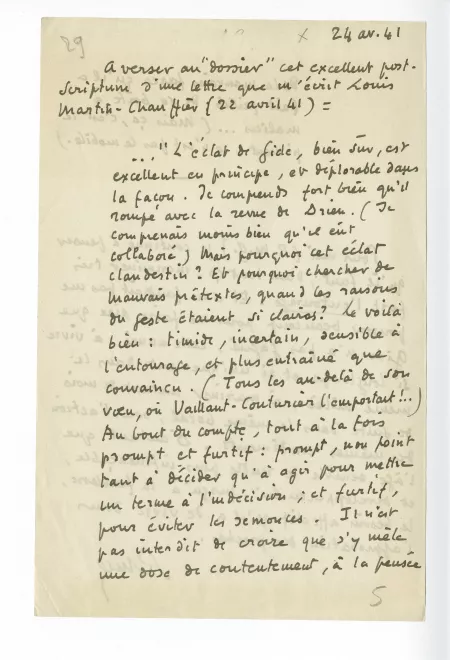 29
24 av. 41
A verser au "dossier" cet excellent post-
scriptum d'une lettre que m'écrit Louis
Martin-Chauffier (22 avril 41) =
..."L'éclat de Gide, bien sûr, est
excellent en principe, et déplorable dans
la façon. Je comprends fort bien qu'il
rompe avec la revue de Drieu. (Je
comprenais moins bien qu'il eût
collaboré) Mais pourquoi cet éclat
clandestin? Et pourquoi chercher de
mauvais prétextes, quand les raisons
du geste étaient si claires? Le voilà
bien : timide, incertain, sensible à
l'entourage, et plus entraîné que
convaincu. (Tous les au-delà de son
vœu, où Vaillant-Couturier l'emportait!..)
Au bout du compte, tout à la fois
prompt et furtif : prompt, non point
tant à décider qu'à agir pour mettre
un terme à l'indécision ; et furtif,
pour éviter les semonces. Il n'est
pas interdit de croire que s'y mêle
une dose de contentement, à la pensée
5